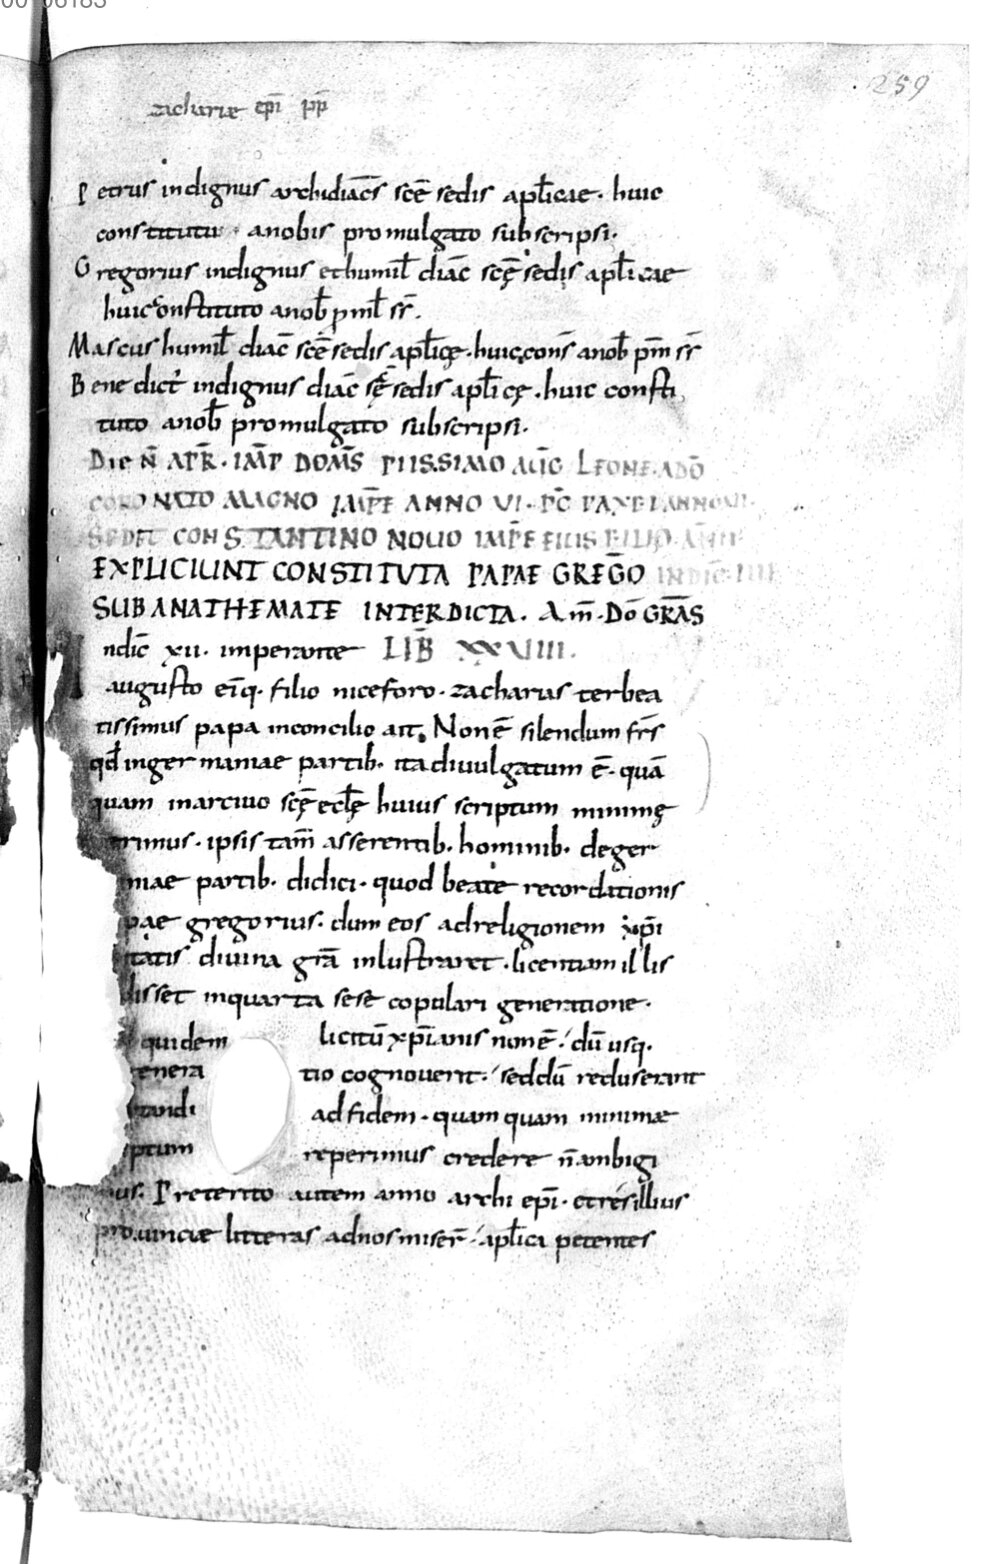 259
zachariae epī pp̄
Petrus indignus archidiac̄s sc̄e sedis apl̄icae · huic
constitutu · anobis promulgato subscripsi·
Gregorius indignus et humil̄ diac̄ sc̄ę sedis apl̄icae
huic constituto anob̄ pml̄ sr̄.
Mascus humil̄ diac̄ sc̄e sedis apl̄icę · huic cons̄ anob̄ pm̄ sr̄
Benedict' indignus diac̄ sc̄ę sedis apl̄icę · huic consti
tuto anob̄ promulgato subscripsi·
DIE N̄ APR̄ · IM̄P DOM̄S PIISSIMO AUḠ LEONE · ADŌ
CORONATO MAGNO IMP̄E ANNO VI · PC̄ ANNO VI·
SEDET CONSTANTINO NOUO IMP̄E EIUS FILIO ·
EXPLICIUNT CONSTITUTA PAPAE GREGŌ INDIC̄ IIII
SUB ANATHEMATE INTERDICTA. Am̄ · Dō GRAS̄
ndic̄ xii · imperante LIB̄ XXVIIII.
augusto eiq̄· filio niceforo · zacharias terbea
tissimus papa inconcilio ait. Non ē silendum frs̄
qd̄ ingermaniae partib· ita diuulgatum ē · quā
quam inarciuo sc̄ę eclę̄ huius scriptum minimę
erimus · ipsis tam̄ asserentib· hominib· deger
niae partib· didici · quod beate recordationis
pae gregorius · dum eos adreligionem xp̄i
itatis diuina grā inlustraret · licentiam illis
disset inquarta sese copulari generatione·
quidem licitū xp̄ianis non ē · dū usq·
enera tio cognouerit · sed dū ruduserant
tandi ad fidem · quam quam minimae
ptum reperimus credere n̄ ambigi
us · Preterito autem anno archi epī · et res illius
prouinciae litteras adnos miser̄ · apl̄ica petentes